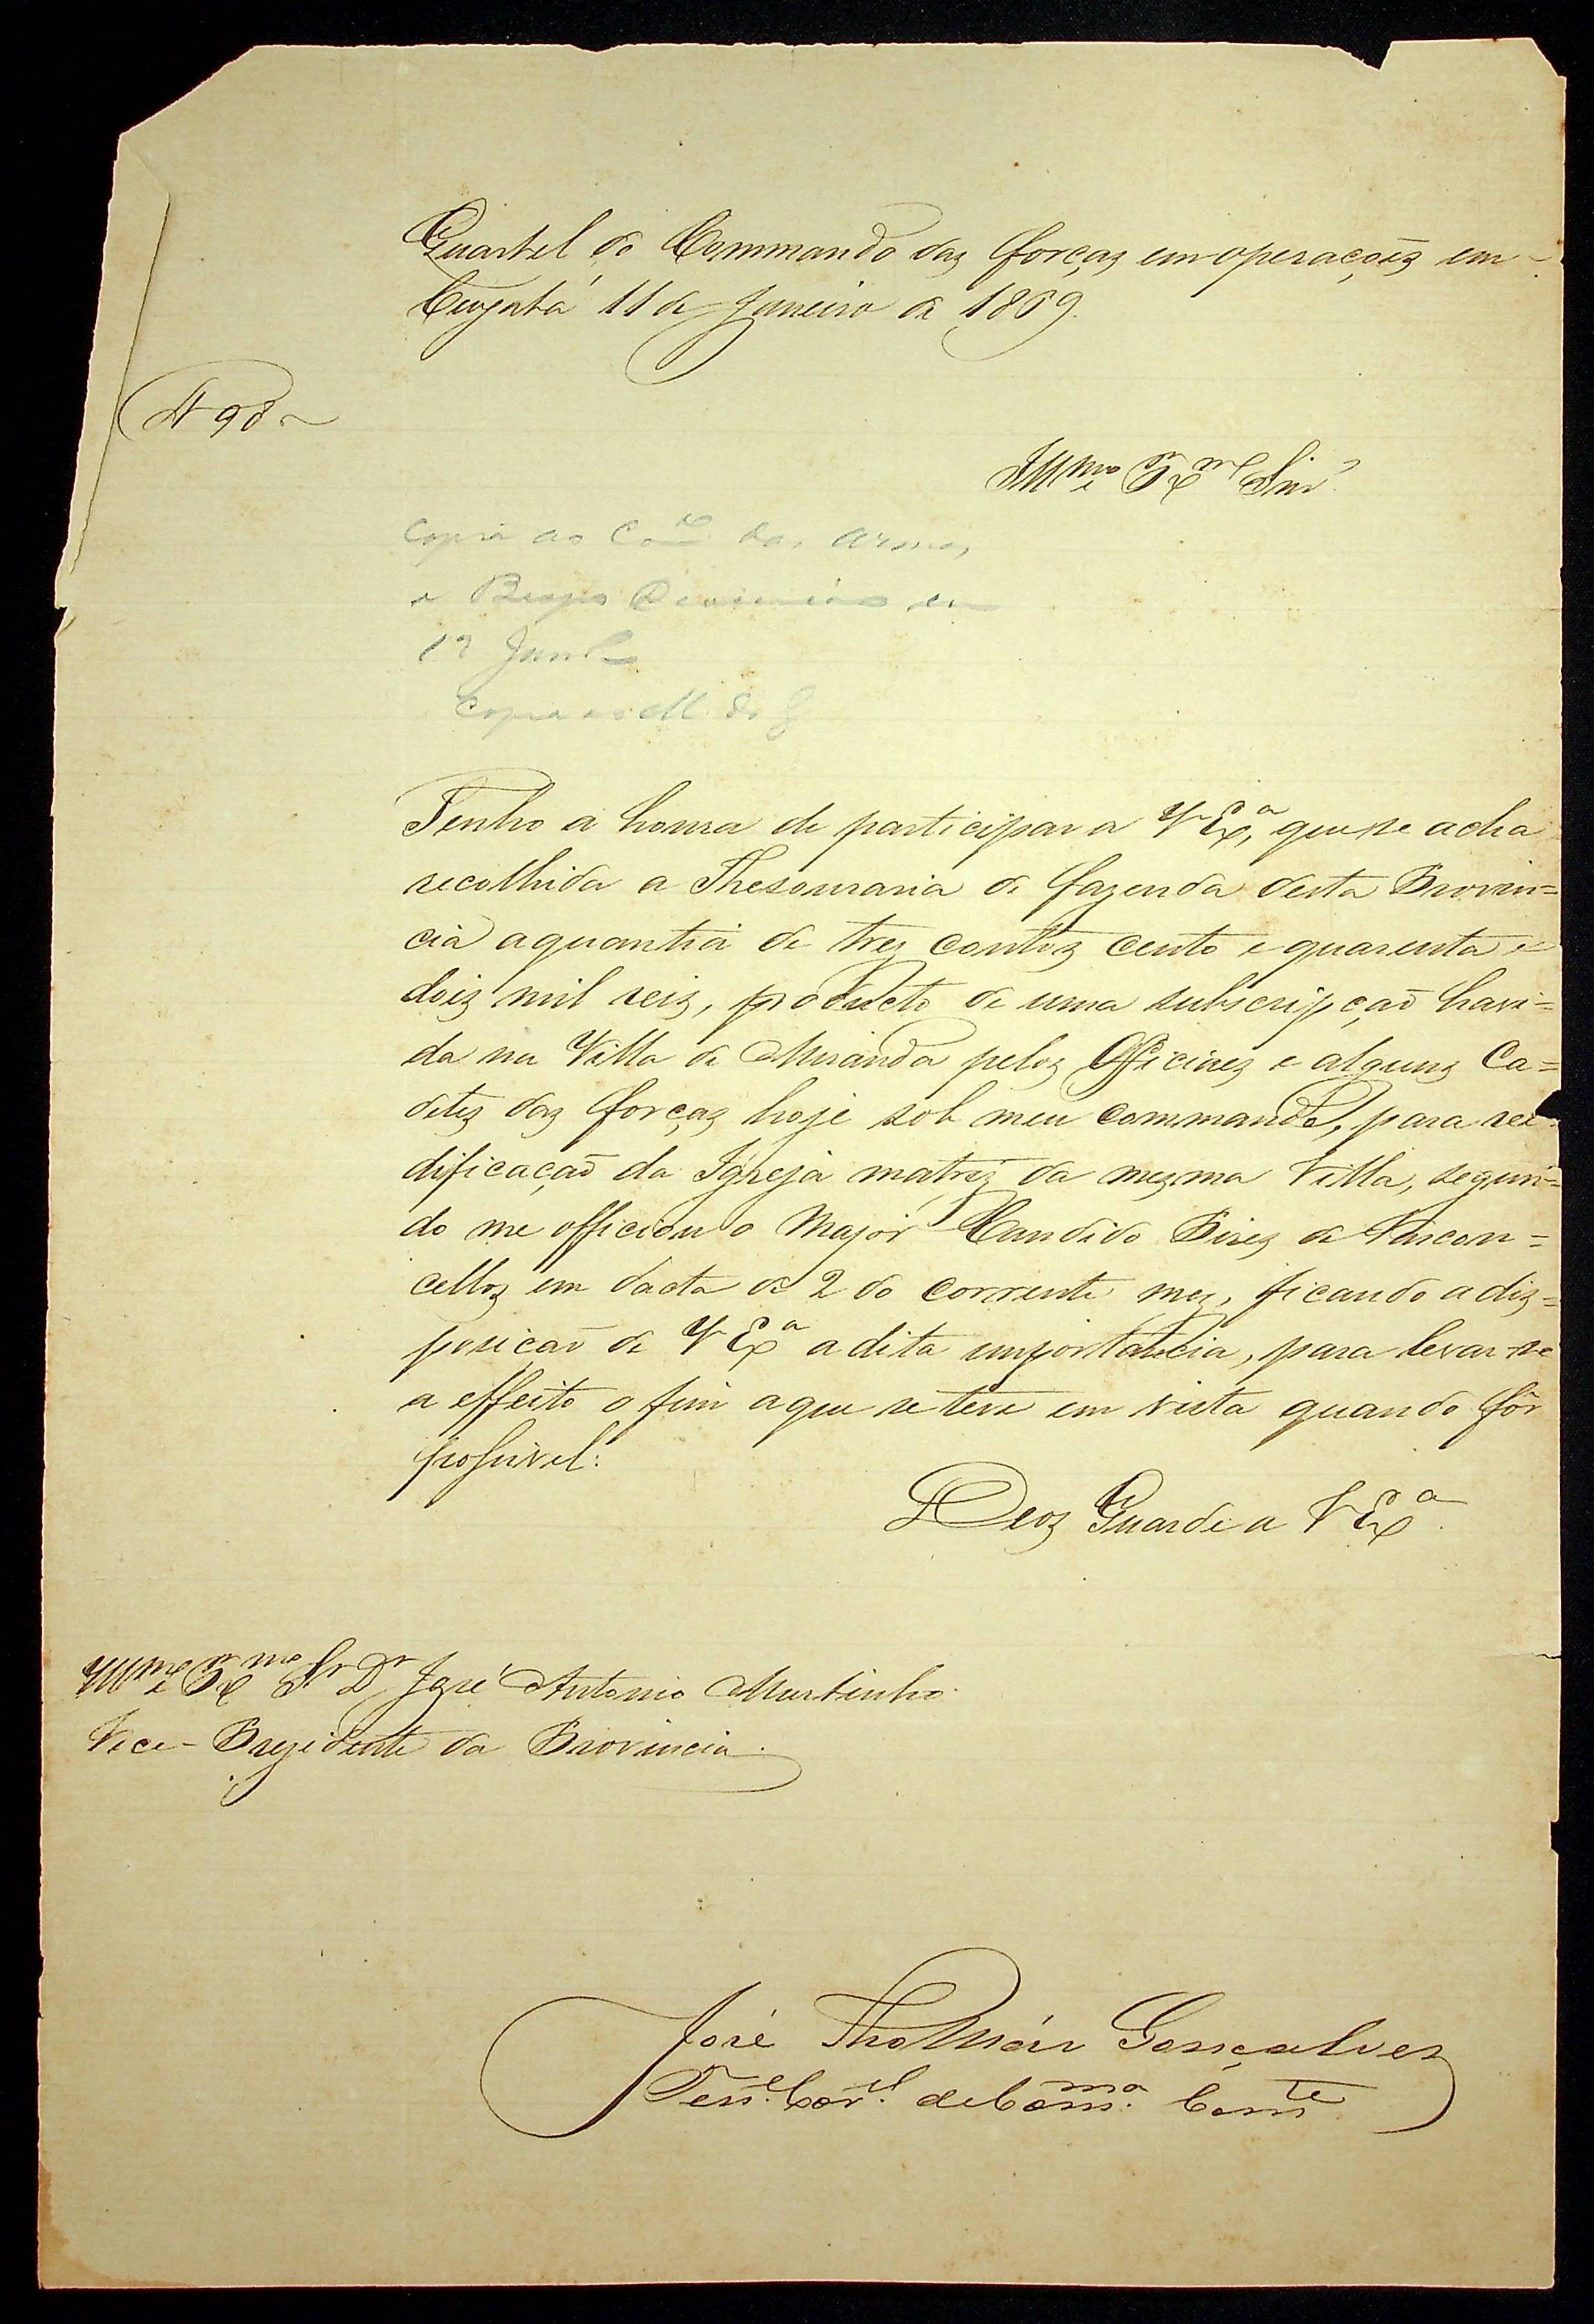 Quartel do Commando das forças em operações em
Cuyabá 11 de Janeiro de 1869.
N 98
Illmo e Exmo Snr
Copia ao Com.e das Armas
e Bispo Diocesano em
12 Junho
Copia ao M. da G
Tenho a honra de participar a V Exª, que se acha
recolhida a Thesouraria de fazenda desta Provin=
cia a quantia de tres contos cento e quarenta e
dois mil reis, producto de uma subscripção havi=
da na Villa de Miranda pelos Officiaes e alguns Ca=
detes das forças hoje sob meu commando, para ree=
dificação da Igreja matriz da mesma Villa, segun=
do me officiou o Major Candido Pires de Vascon=
cellos em dacta de 2 do corrente mez, ficando a dis=
posicão de V Exª a dita importancia, para levar-se
a effeito o fim a que se teve em vista quando fôr
possivel.
Deos Guarde a V Exª
Illmo e Exmo Sr Dr José Antonio Murtinho
Vice-Prezidente da Provincia.
José Thomás Gonçalves
Tene. Corel. de Comm.ª Comte